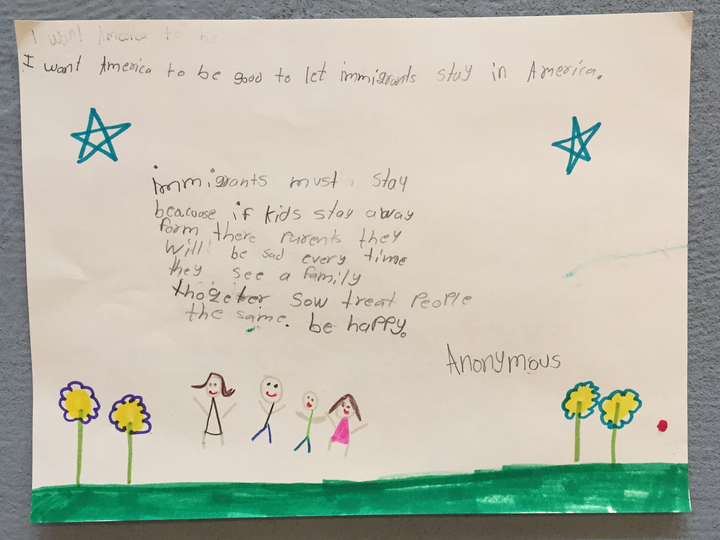 I want America to be
I want America to be good to let immigrants stay in America.
immigrants must stay
beacuase if kids stay away
form there Parents they
Will be sad every time
they see a family
thogeter sow treat People
the same. be happy.
Anonymous